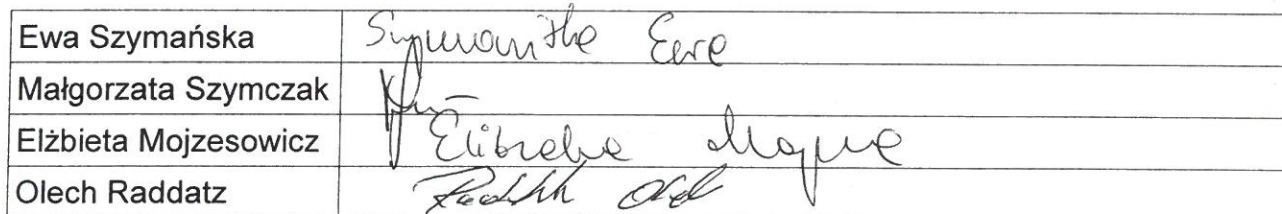 Ewa Szymańska Szymańska Ewa
Małgorzata Szymczak
Elżbieta Mojzesowicz Elżbieta
Olech Raddatz